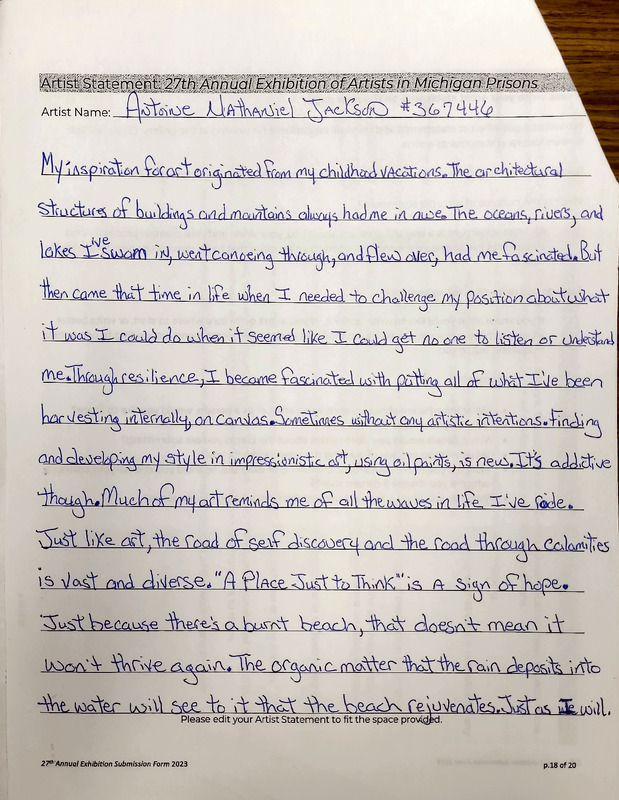 Artist Statement: 27th Annual Exhibition of Artists in Michigan Prisons
Artist Name: Antoine Nathaniel Jackson #367446
My inspiration for art originated from my childhood vacations. The architectural
structures of buildings and mountains always had me in awe. The oceans, rivers, and
lakes I've swam in, went canoeing through, and flew over, had me fascinated. But
then came that time in life when I needed to challenge my position about what
it was I could do when it seemed like I could get no one to listen or understand
me. Through resilience, I became fascinated with putting all of what I've been
harvesting internally, on canvas. Sometimes without any artistic intentions. Finding
and developing my style in impressionistic art, using oil paints, is new. It's addictive
though. Much of my art reminds me of all the waves in life I've rode.
Just like art, the road of self discovery and the road through calamities
is vast and diverse. "A Place Just to Think" is a sign of hope.
Just because there's a burnt beach, that doesn't mean it
won't thrive again. The organic matter that the rain deposits into
the water will see to it that the beach rejuvenates. Just as I will.
Please edit your Artist Statement to fit the space provided.
27th Annual Exhibition Submission Form 2023 p.18 of 20